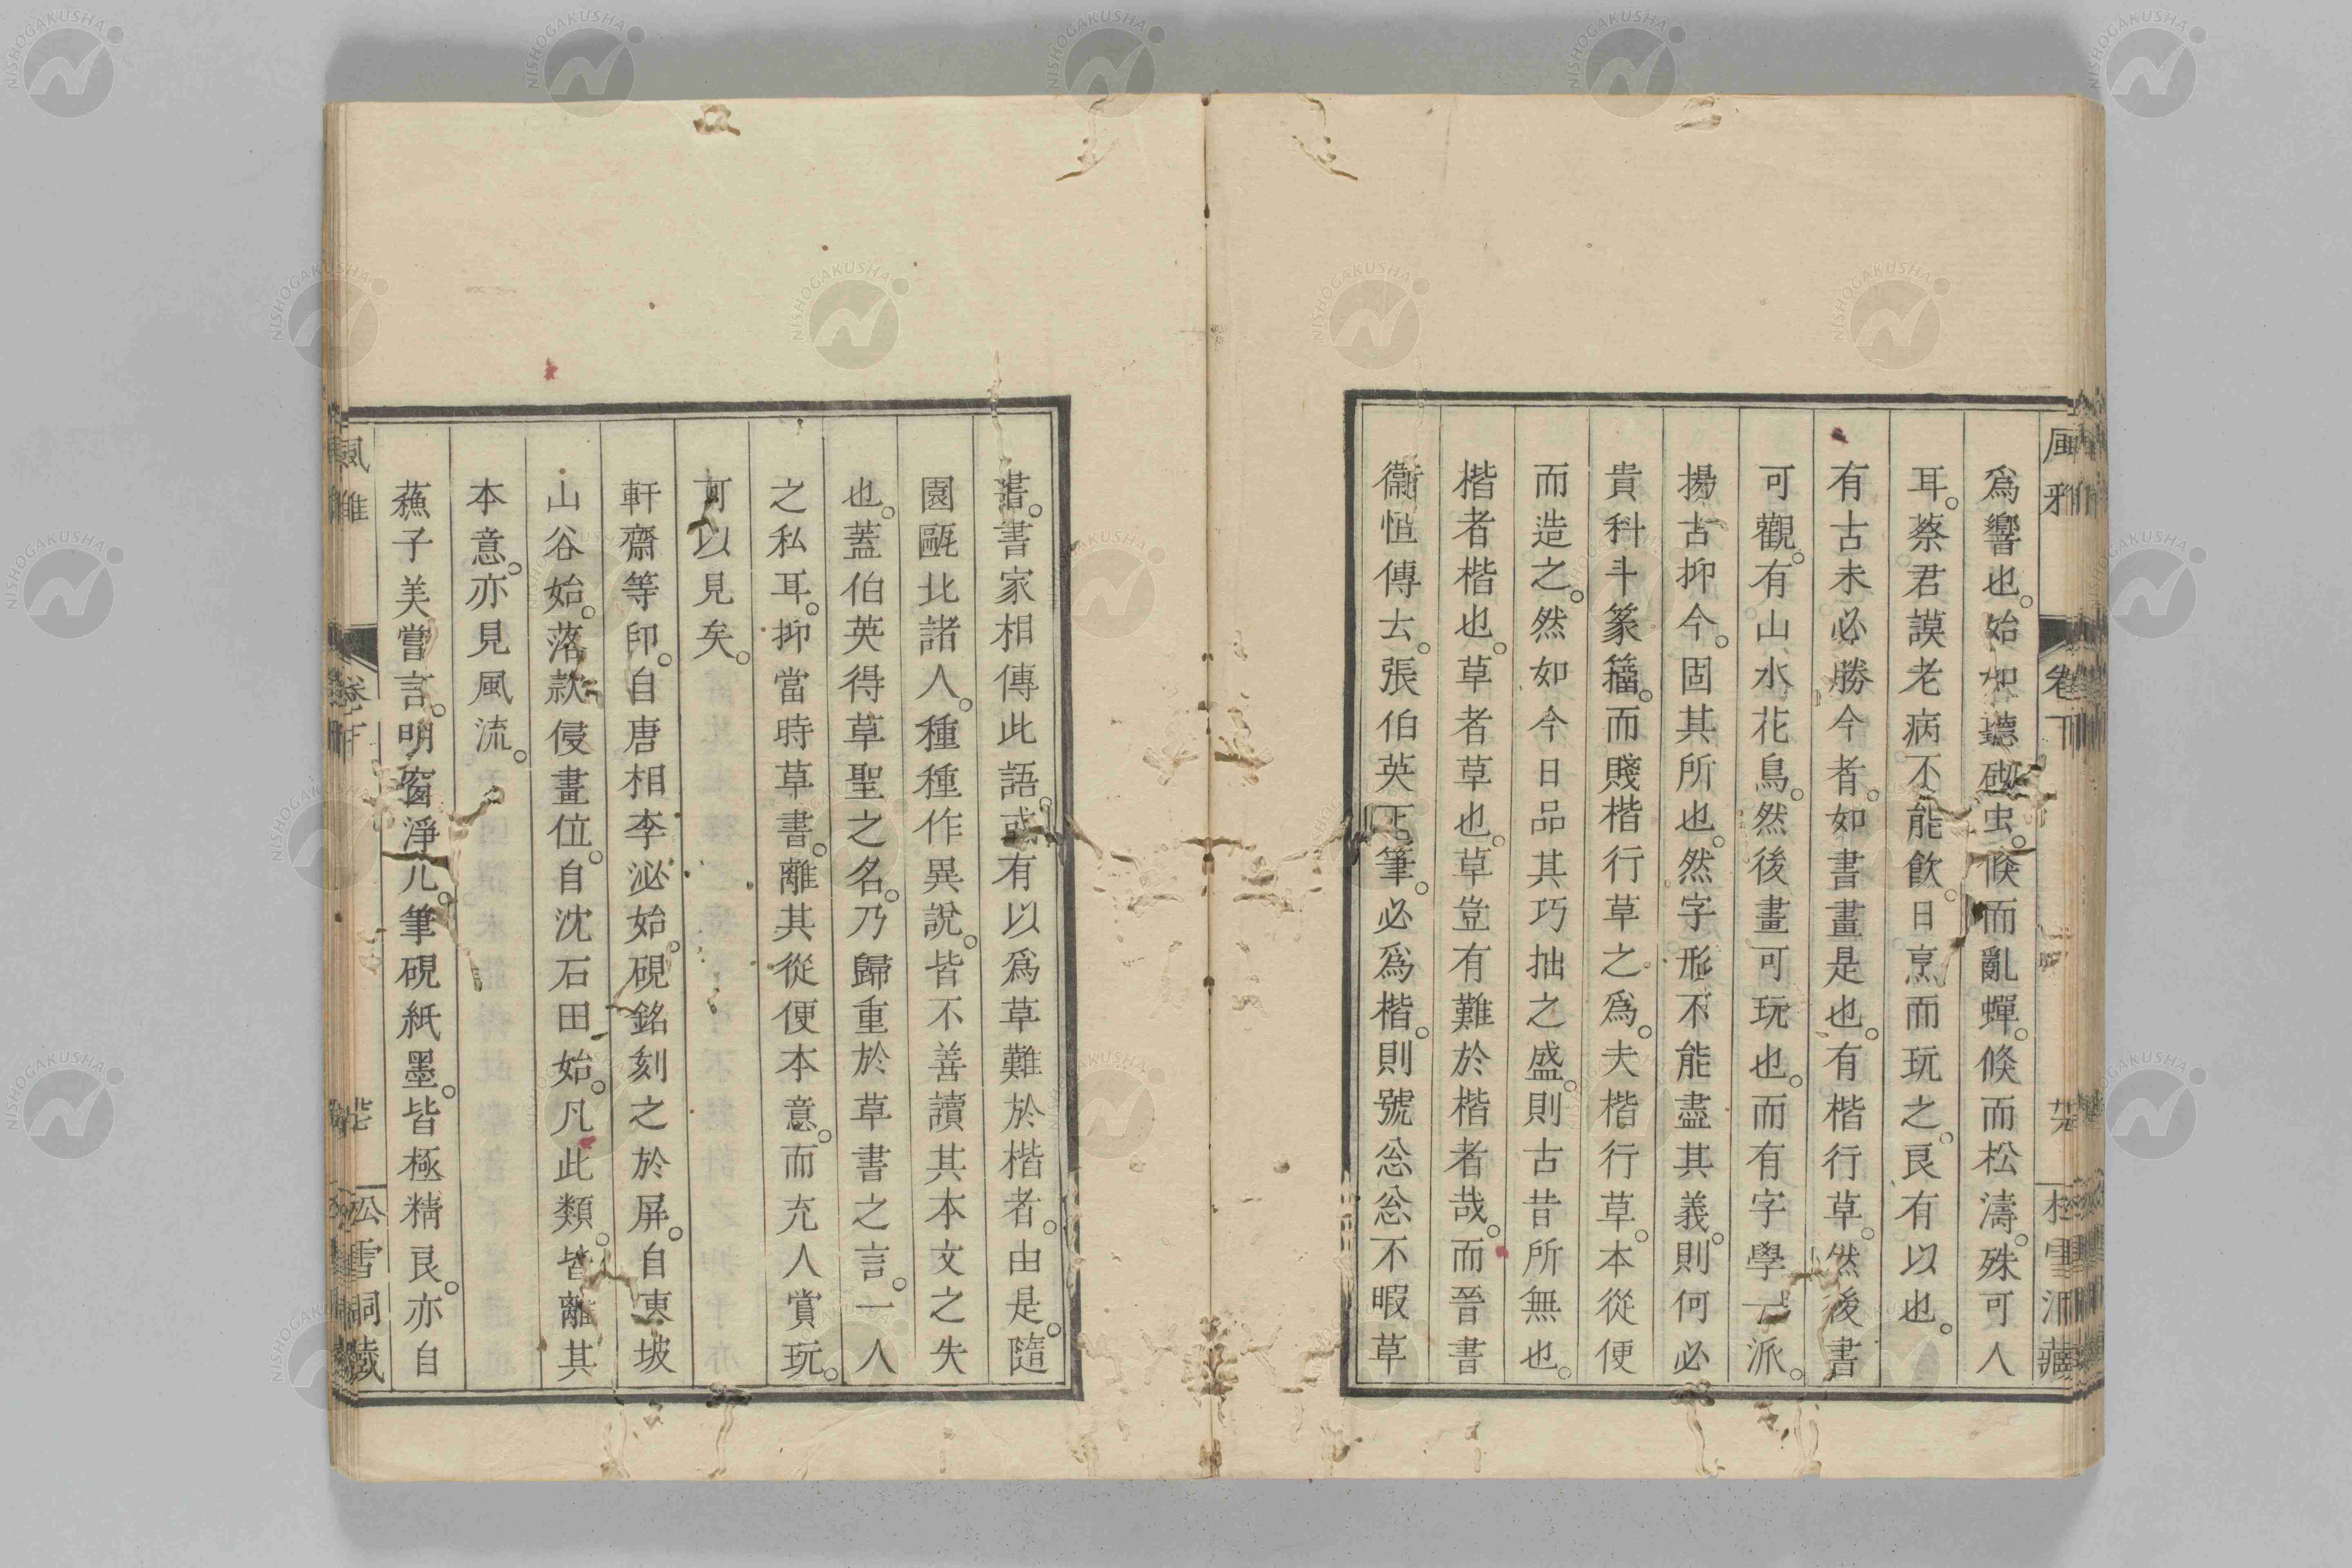 爲響也。始如聽砌虫。倏而亂蟬。倏而松濤。殊可人
耳。蔡君謨老病不能飮。日烹而玩之。良有以也。
有古未必勝今者。如書畫是也。有楷行草。然後書
可觀。有山水花鳥。然後畫可玩也。而有字學一派。
揚古抑今。固其所也。然字形不能盡其義。則何必
貴科斗篆籒。而賤楷行草之爲。夫楷行草。本從便
而造之。然如今日品其巧拙之盛。則古昔所無也。
楷者楷也。草者草也。草豈有難於楷者哉。而晉書
衞恒傳云。張伯英下筆。必爲楷。則號忩忩不暇草
書。書家相傳此語。或有以爲草難於楷者。由是。隨
園甌北諸人。種種作異說。皆不善讀其本文之失
也。蓋伯英得草聖之名。乃歸重於草書之言。一人
之私耳。抑當時草書。離其從便本意。而充人賞玩。
可以見矣。
軒齋等印。自唐相李泌始。硯銘刻之於屏。自東坡
山谷始。落款侵畫位。自沈石田始。凡此類。皆離其
本意。亦見風流。
蘓子美嘗言。明窗淨几。筆硯紙墨。皆極精良。亦自
風雅
卷下
松雪洞藏
NISHOGAKUSHA